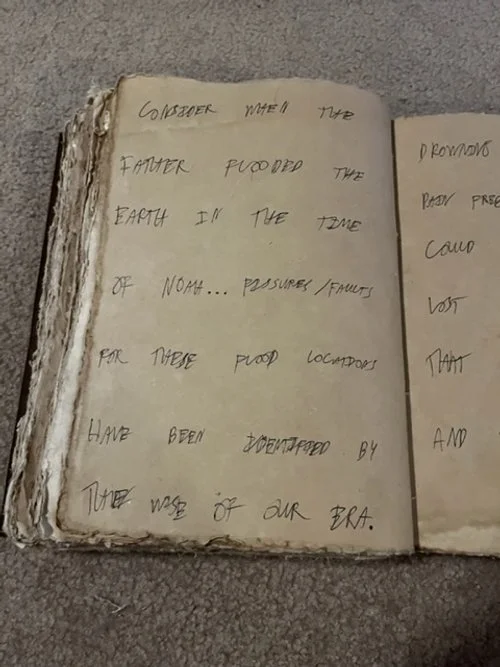 CONSIDER WHEN THE
FATHER FLOODED THE
EARTH IN THE TIME
OF NOAH... FISSURES/FAULTS
FOR THESE FLOOD LOCATIONS
HAVE BEEN IDENTIFIED BY
THEE WISE OF OUR ERA.
DROWNING
PAIN FREE
COULD
LOST
THAT
AND